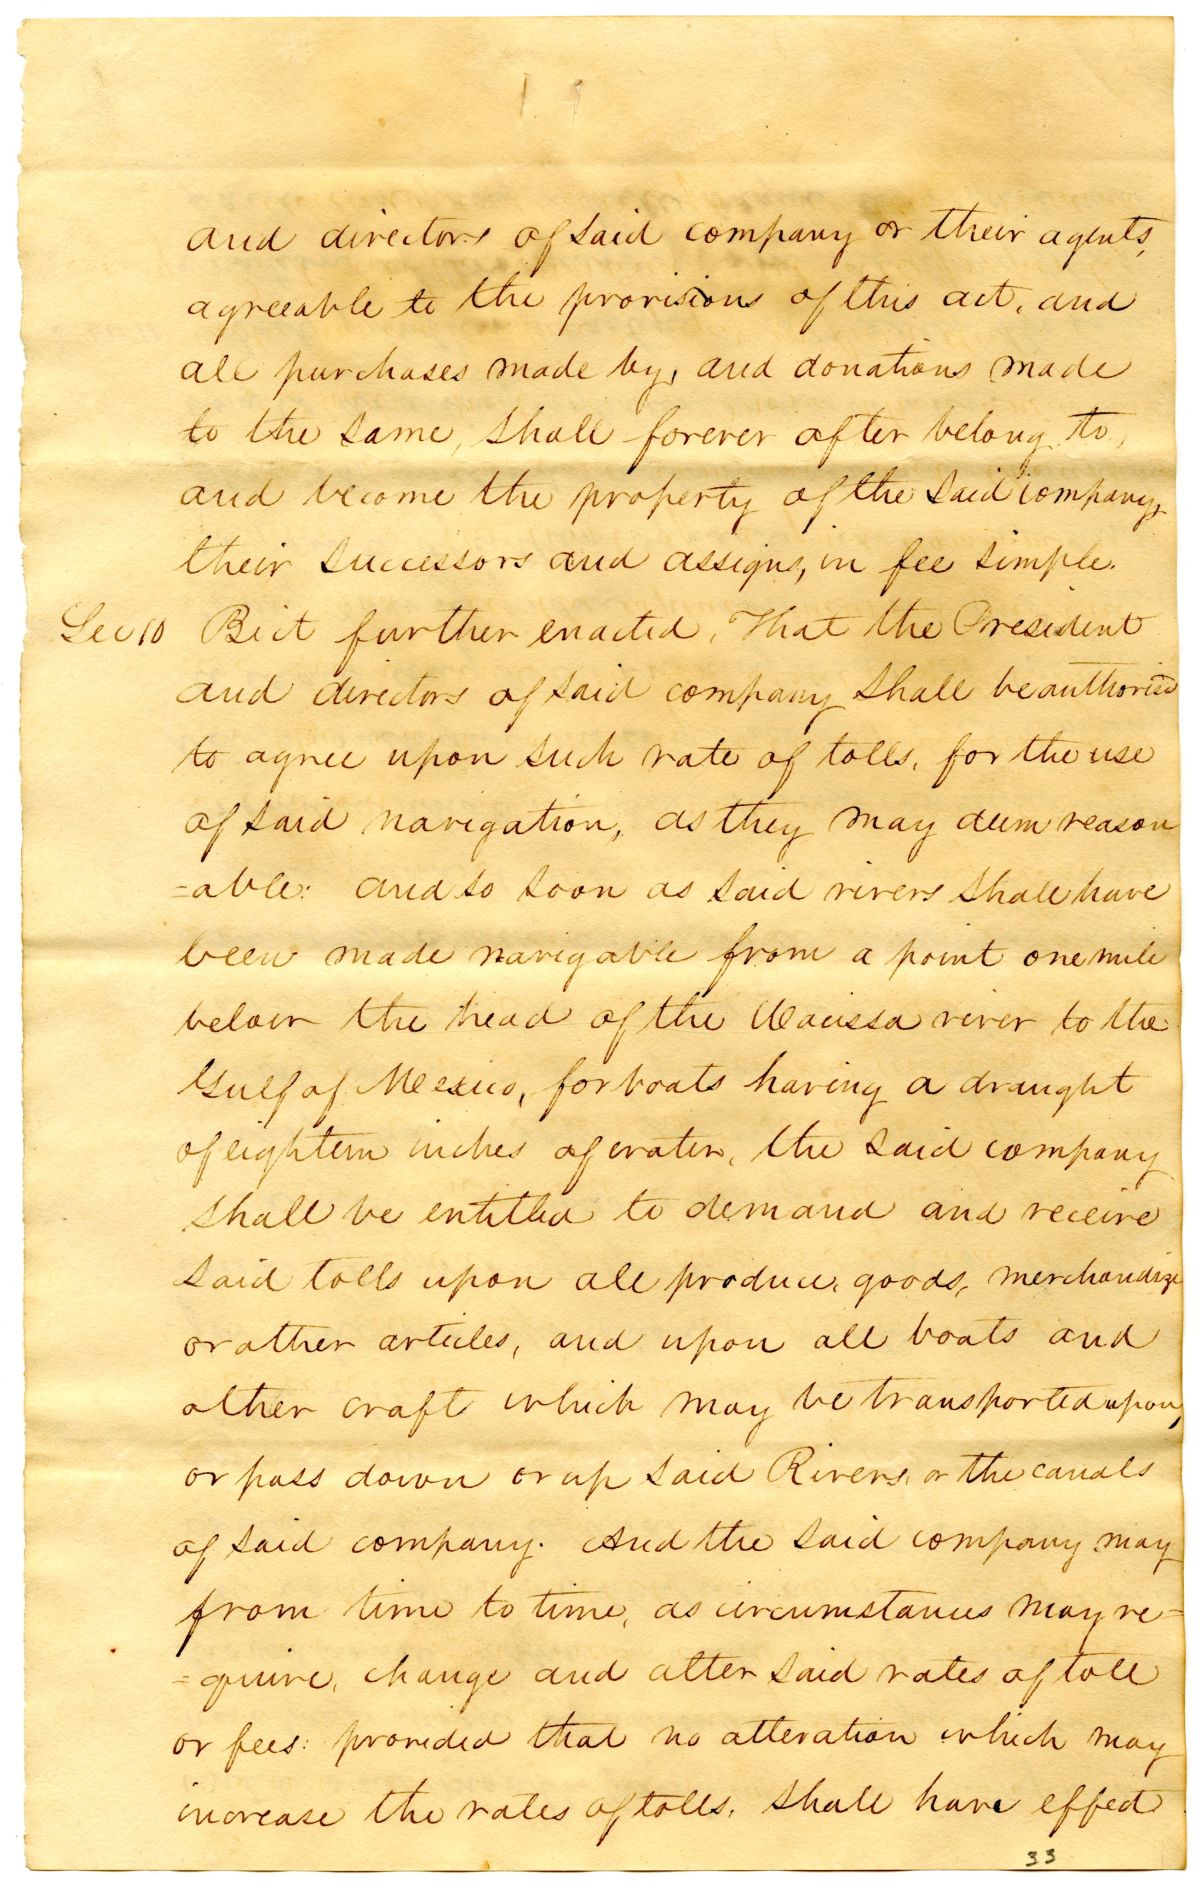 and directors of said company or their agents,
agreeable to the provisions of this act, and
all purchases made by, and donations made
to the same, shall forever after belong to,
and become the property of the said company,
their successors and assigns, in fee simple.
Sec 10 Beit further enacted, That the President
and directors of said company shall be authorised
to agree upon such rate of tolls, for the use
of said navigation, as they may deem reason
=able: and so soon as said rivers shall have
been made navigable from a point one mile
below the head of the Wacissa river to the
Gulf of Mexico, for boats having a draught
of eighteen inches of water, the said company
shall be entitled to demand and receive
said tolls upon all produce, goods, merchandize
or other articles, and upon all boats and
other craft which may be transported upon,
or pass down or up said Rivers, or the canals
of said company. And the said company may
from time to time, as circumstances may re=
=quire, change and alter said rates of toll
or fees: provided that no alteration which may
increase the rates of tolls, shall have effect
33